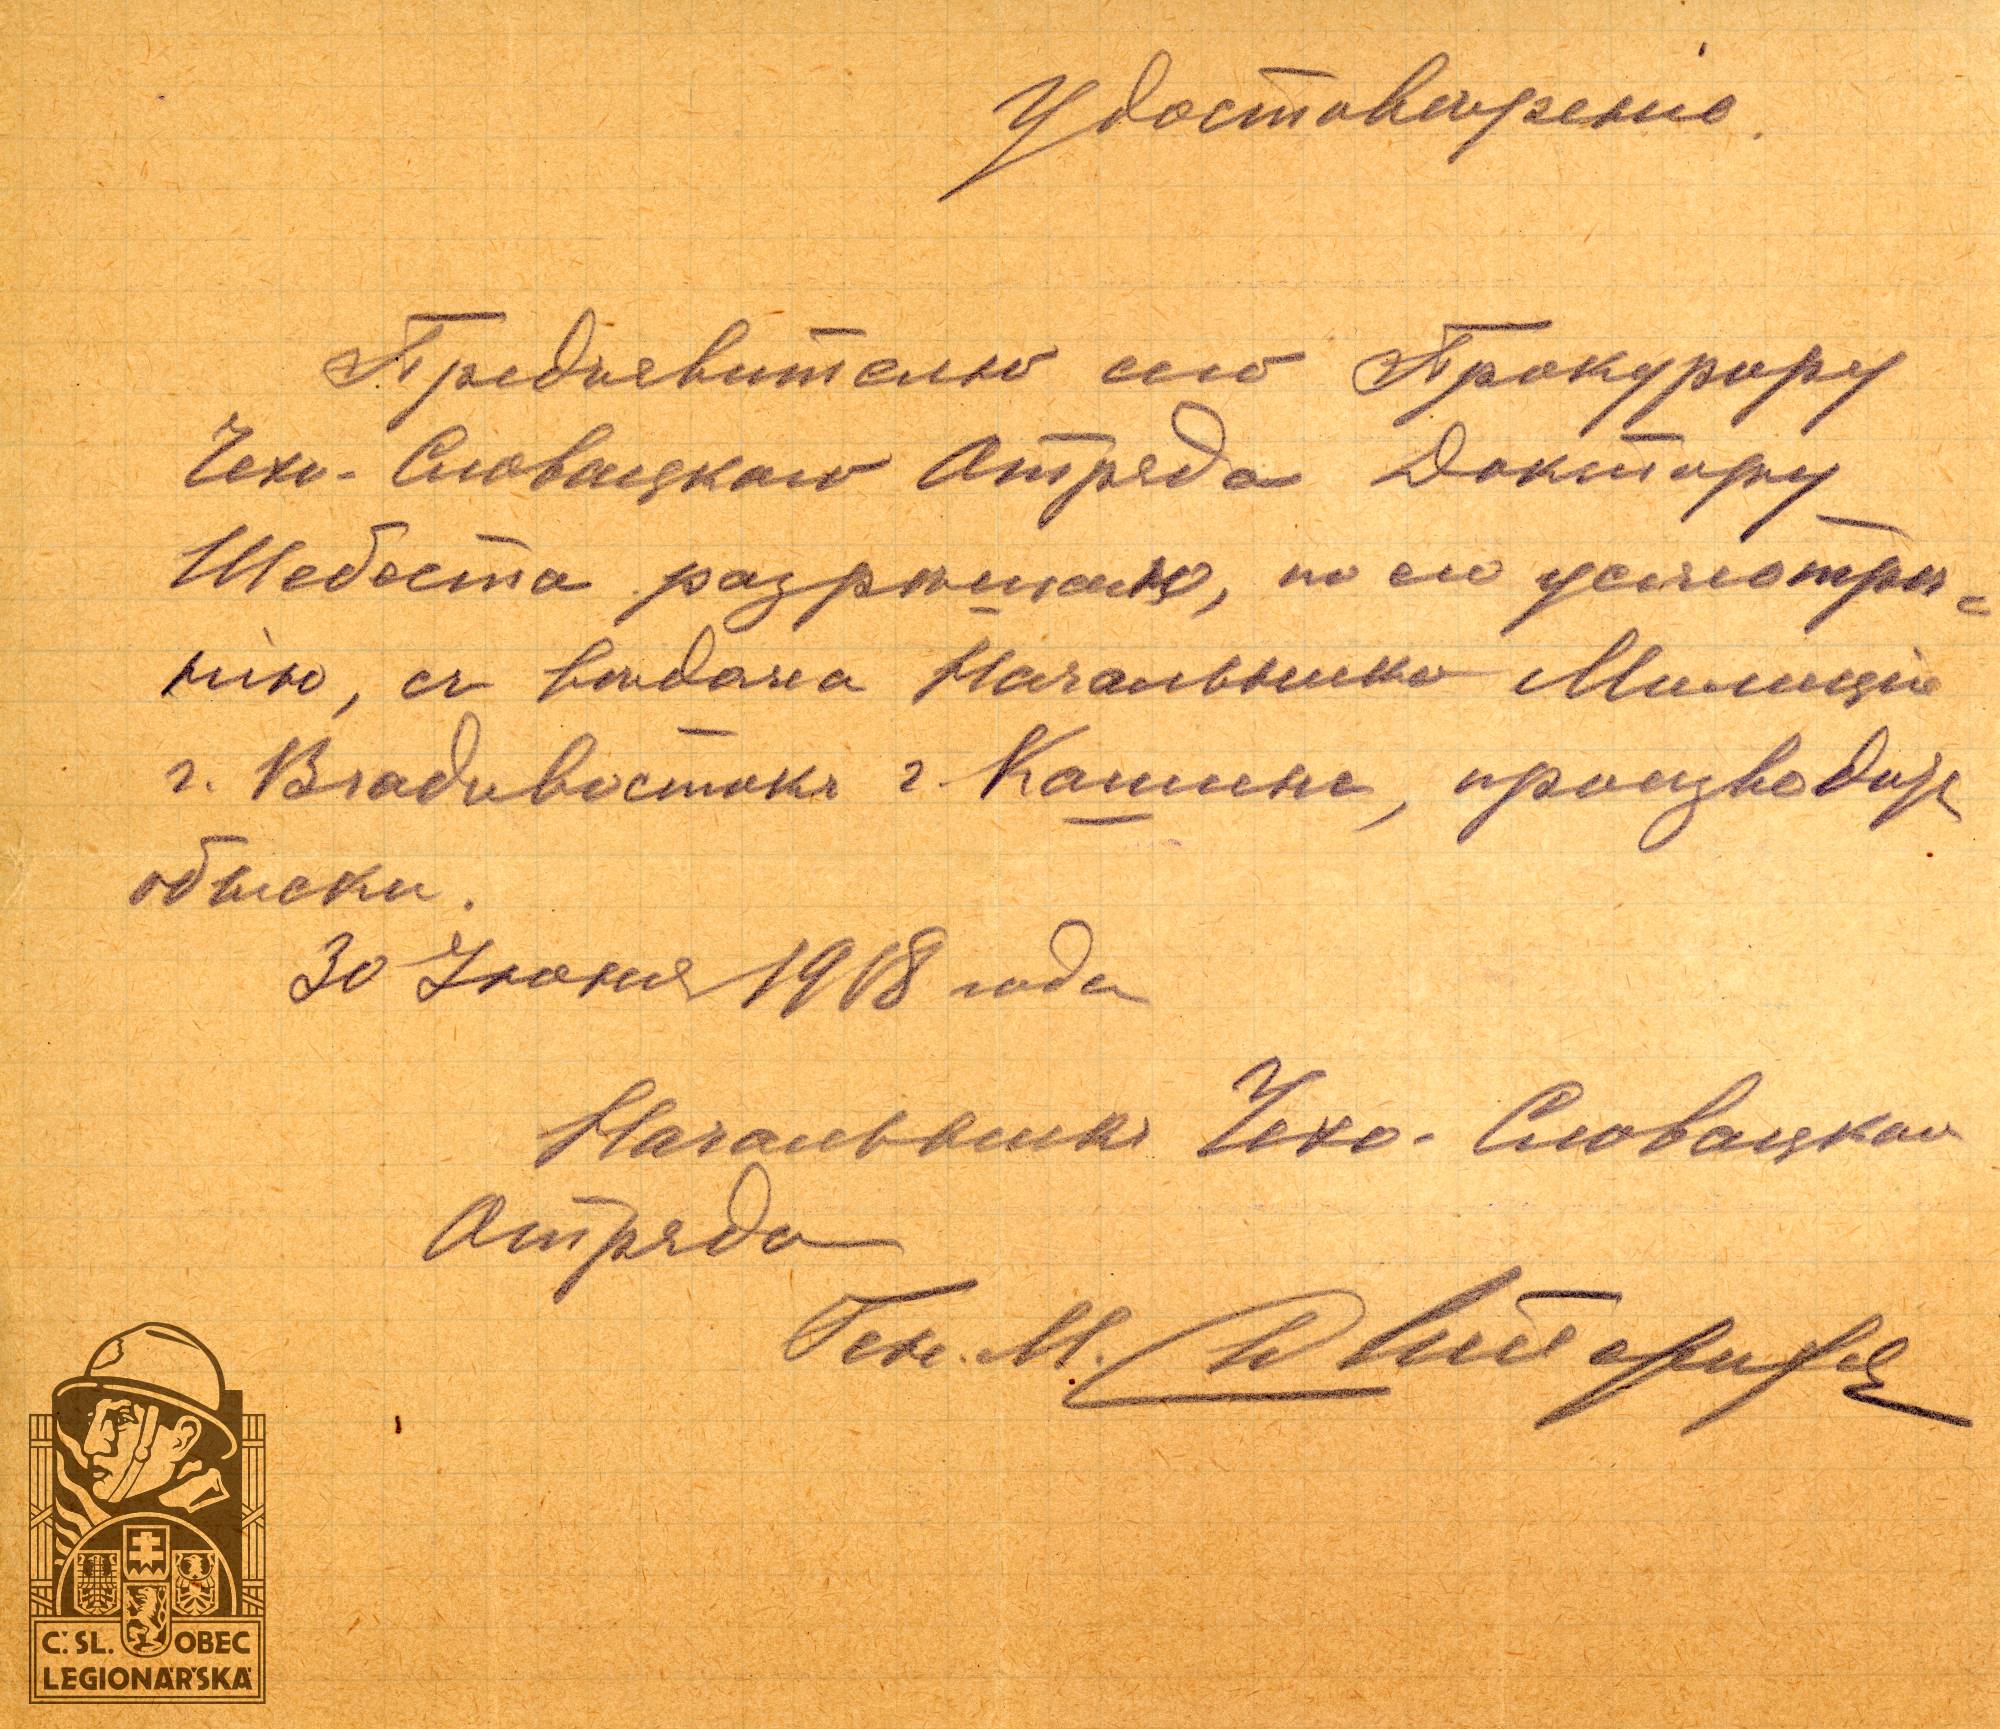 Удостовѣреніе.
Предъявителю сего Прокурору
Чехо-Словацкаго Отряда Доктору
Шебеста разрѣшаю, по его усмотрѣ-
нію, съ вѣдома Начальника Милиціи
г. Владивостока г. Кашина, производить
обыски.
30 Іюня 1918 года
Начальникъ Чехо-Словацкаго
Отряда
Ген. М. Дитерихсъ
Č. SL. OBEC
LEGIONÁŘSKÁ